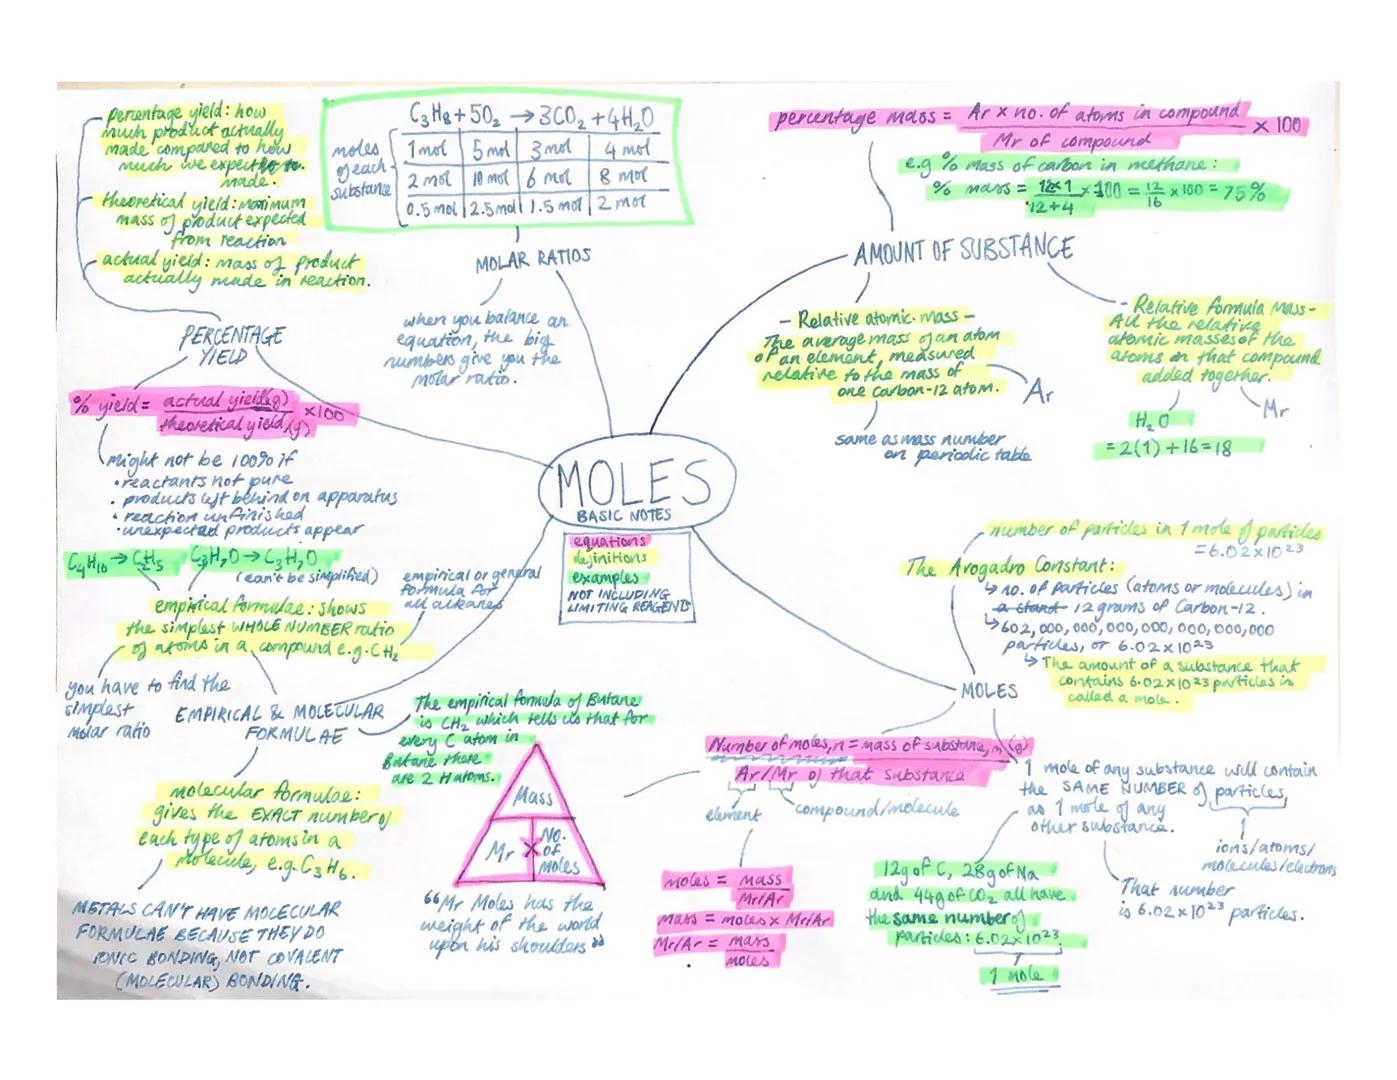 Percentage yield: how
much product actually
made compared to how
much we expect to
made.
theoretical yield: maximum
mass of product expected
from reaction
actual yield: mass of product
actually made in reaction.
PERCENTAGE
YIELD
% yield = actual yield (g) / theoretical yield (g) × 100
might not be 100% if
• reactants not pure
• products left behind on apparatus
• reaction unfinished
• unexpected products appear
C₃H₈ + 5O₂ → 3CO₂ + 4H₂O
moles
of each
substance
1 mol 5 mol 3 mol 4 mol
2 mol 10 mol 6 mol 8 mol
0.5 mol 2.5 mol 1.5 mol 2 mol
MOLAR RATIOS
when you balance an
equation, the big
numbers give you the
molar ratio.
percentage mass = Ar × no. of atoms in compound / Mr of compound × 100
e.g % mass of carbon in methane:
% mass = 12×1 / 12+4 × 100 = 12/16 × 100 = 75%
AMOUNT OF SUBSTANCE
- Relative atomic mass -
The average mass of an atom
of an element, measured
relative to the mass of
one carbon-12 atom.
Ar
same as mass number
on periodic table
- Relative formula mass -
All the relative
atomic masses of the
atoms in that compound
added together.
Mr
H₂O
= 2(1) + 16 = 18
MOLES
BASIC NOTES
equations
definitions
examples
NOT INCLUDING
LIMITING REAGENTS
C₄H₁₀ → C₂H₅ C₃H₇O → C₃H₇O
(can't be simplified)
empirical or general
formula for
all alkanes
empirical formulae: shows
the simplest WHOLE NUMBER ratio
of atoms in a compound e.g. CH₂
you have to find the
simplest
molar ratio
EMPIRICAL & MOLECULAR
FORMULAE
The empirical formula of Butane
is CH₂ which tells us that for
every C atom in
Butane there
are 2 H atoms.
molecular formulae:
gives the EXACT number of
each type of atoms in a
molecule, e.g. C₃H₆.
METALS CAN'T HAVE MOLECULAR
FORMULAE BECAUSE THEY DO
IONIC BONDING, NOT COVALENT
(MOLECULAR) BONDING.
Mass
Mr × No.
of
moles
“Mr Moles has the
weight of the world
upon his shoulders”
number of particles in 1 mole of particles
= 6.02×10²³
The Avogadro Constant:
↳ no. of particles (atoms or molecules) in
a stand 12 grams of Carbon-12.
↳ 602,000,000,000,000,000,000,000
particles, or 6.02×10²³
↳ The amount of a substance that
contains 6.02×10²³ particles is
called a mole.
MOLES
Number of moles, n = mass of substance, m (g)
Ar/Mr of that substance
element
compound/molecule
moles = mass / Mr/Ar
mass = moles × Mr/Ar
Mr/Ar = mass / moles
1 mole of any substance will contain
the SAME NUMBER of particles,
as 1 mole of any
other substance.
ions/atoms/
molecules/electrons
That number
is 6.02×10²³ particles.
12g of C, 28g of Na
and 44g of CO₂ all have
the same number of
particles: 6.02×10²³.
1 mole